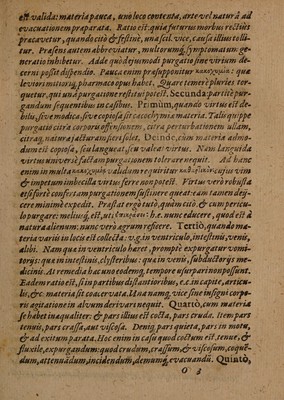 est valida: materia pauca, uno loco contenta, arte vel naturâ ad
euacuationem praparata. Ratio est: quia futurus morbus rectiùs
pracauetur, quando citò & festinè, una scil. vice, causa illius tolli-
tur. Prasens autem abbreviatur, multorumq; symptomatum ge-
neratio inhibetur. Adde quòd ejusmodi purgatio sine virium de-
cerni posit dispendio. Pauca enim prasupponitur κακοχυμία: qua
leviori mitioriq; pharmaco opus habet. Quare temerè pluries tor-
quetur, qui unâ purgatione restitui potest. Secunda: partitè pur-
gandum sequentibus in casibus. Primùm, quando virtus est de-
bilis, sive modica: sive copiosa sit cacochymia materia. Tali quippe
purgatio citra corporis offensionem, citra perturbationem ullam,
citraq; natura jacturam perficitur. Deinde, cùm materia admo-
dum est copiosa, seu langueat, seu valeat virtus. Nam languida
virtus universè factam purgationem tolerare nequit. Ad hanc
enim in multa κακοχυμία validum requiritur cujus vim
& impetum imbecilla virtus ferre non potest. Virtus verò robusta
etsi fortè confertam purgationem sustinere queat: eam tamen adji-
cere minimè expedit. Prastat ergo tutò, quàm citò & cum pericu-
lo purgare: meliusq; est, uti hæ. nunc educere, quod est à
natura alienum: nunc verò agrum reficere. Tertiò, quando ma-
teria varii in locis est collecta: v.g. in ventriculo, intestinis, venis,
alibi. Nam qua in ventriculo haret, promptè expurgatur vomi-
toriis: qua in intestinis, clysteribus: qua in venis, subductoriis me-
dicinis. At remedia hac uno eodemq; tempore usurpari non possunt.
Eadem ratio est, si in partibus distantioribus, e.x. in capite, articu-
lis, &c. materia sit coacervata. Una namq; vice sine insigni corpo-
ris agitatione in alvum derivari nequit. Quartò, cum materia
se habet inaqualiter: & pars illius est cocta, pars cruda. Item pars
tenuis, pars crassa, aut viscosa. Deniq; pars quieta, pars in motu,
& ad exitum parata. Hoc enim in casu quod coctum est, tenue, &
fluxile, expurgandum: quod crudum, crassum, & viscosum, coque-
dum, attenuâdum, incidendum, demumq; evacuandũ. Quintò,
O 3